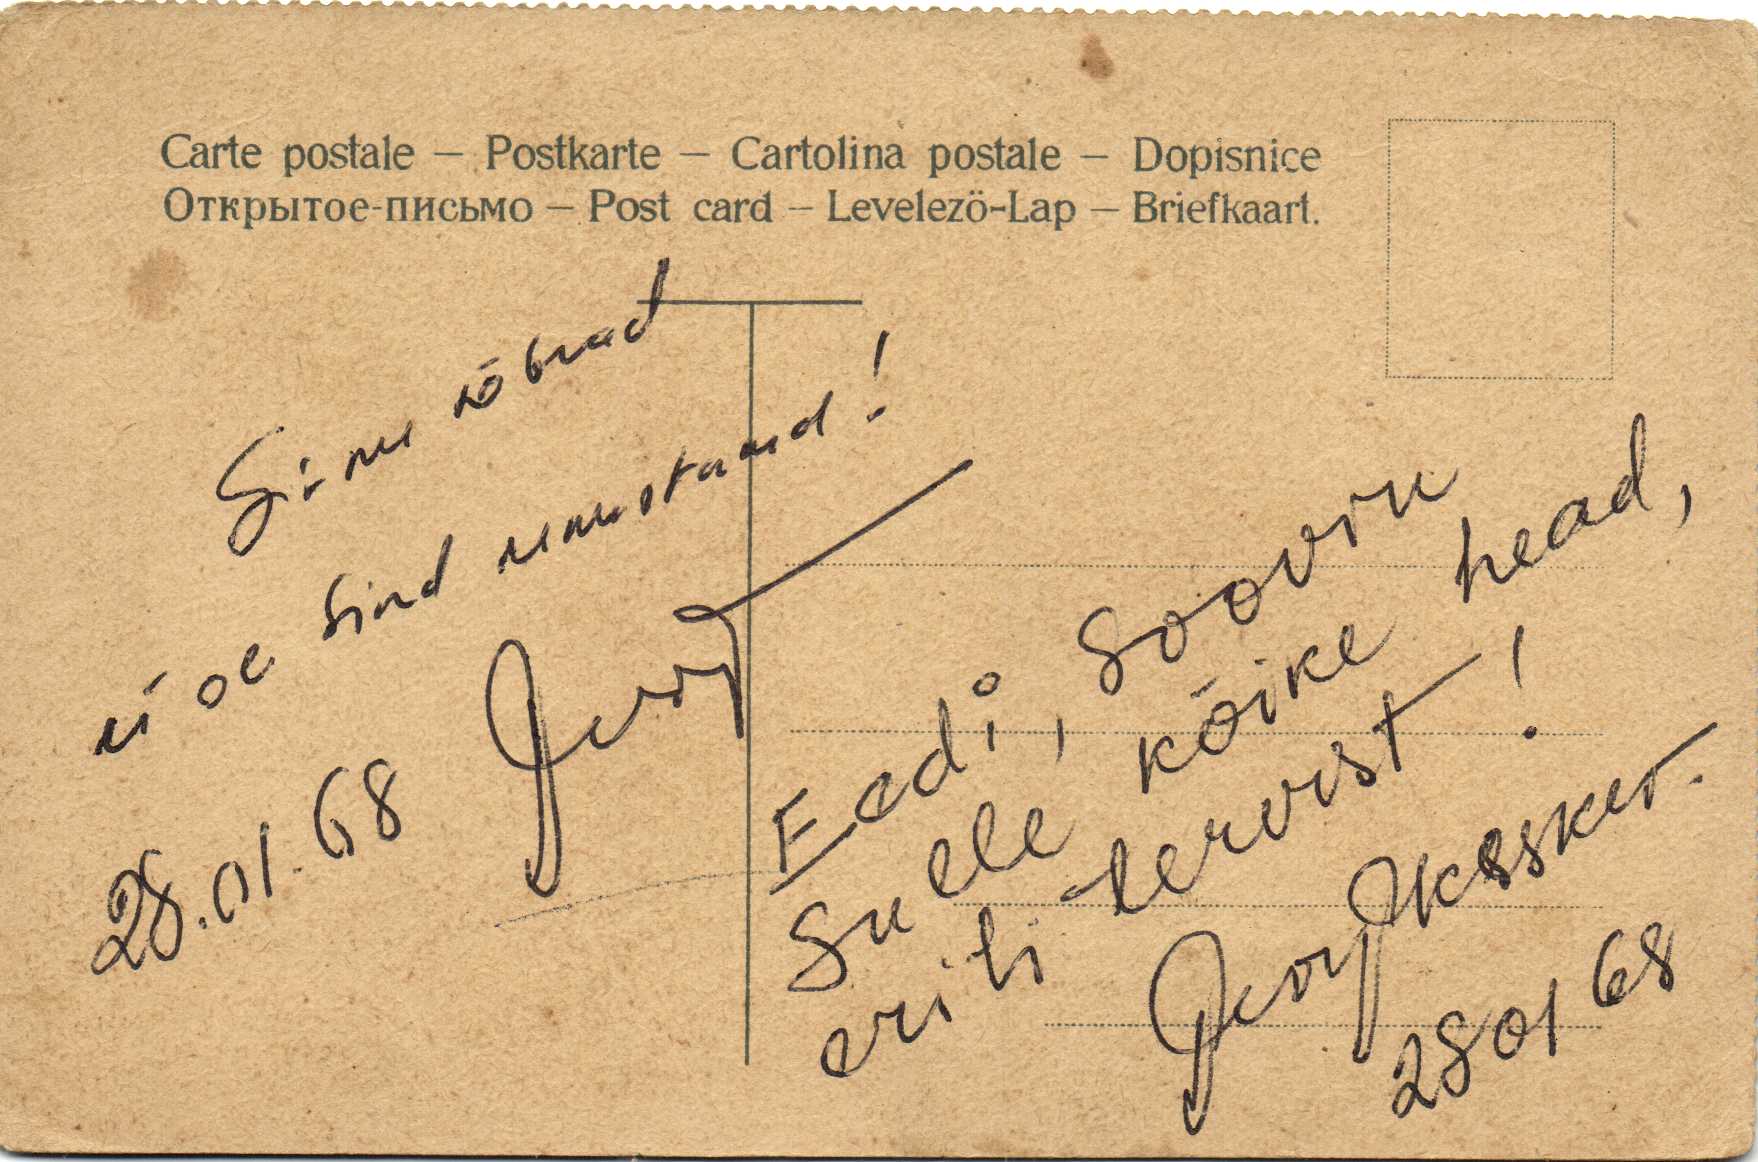 Carte postale – Postkarte – Cartolina postale – Dopisnice
Открытое-письмо – Post card – Levelező-Lap – Briefkaart.
Sinu sõbrad
ei ole Sind unustanud!
28.01.68
Eedi, soovin
Sulle kõike head,
eriti tervist!
28 01 68